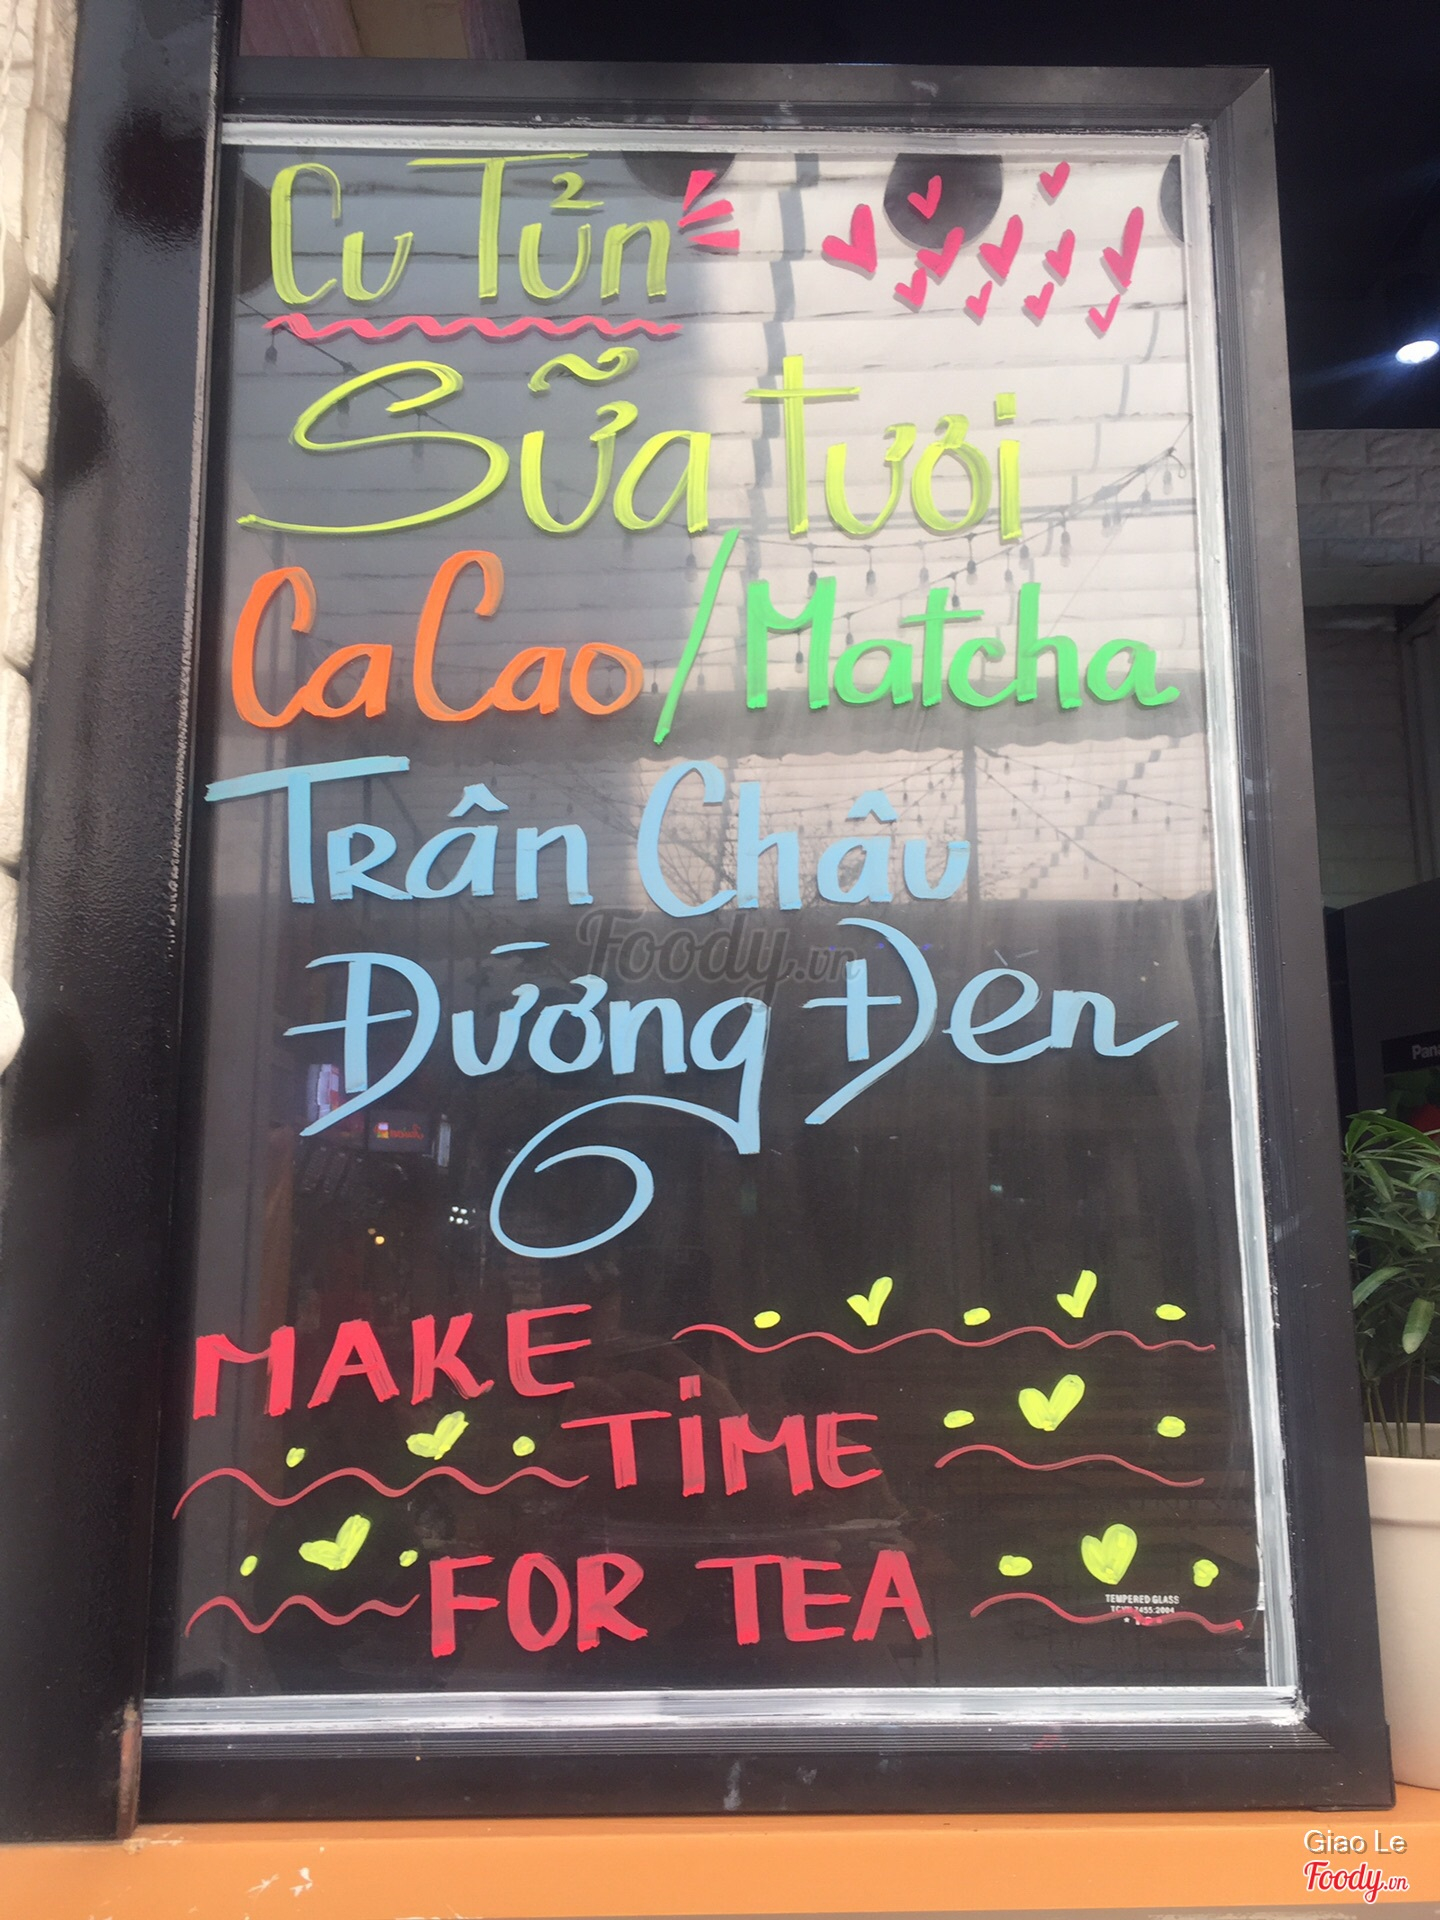 Cu Tủn
Sữa tươi
CaCao/Matcha
Trân Châu
Đường Đen
Foody.vn
MAKE
TIME
FOR TEA
TEMPERED GLASS
Pana
Giao Le
Foody.vn